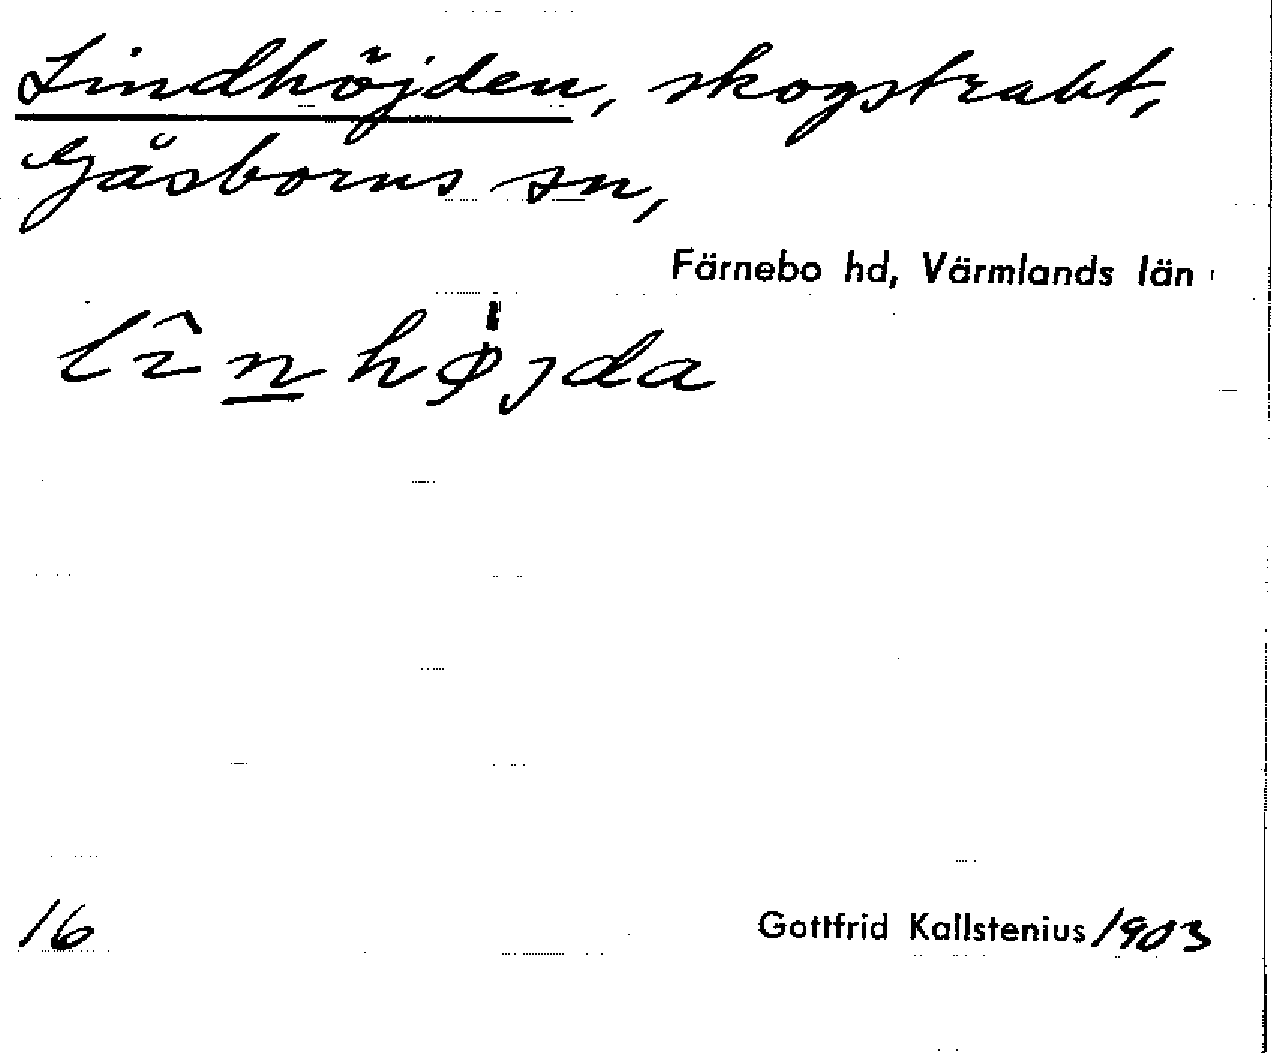 Lindhöjden, skogstrakt,
Gåsborns sn,
Färnebo hd, Värmlands län
lînhø̍jda
16
Gottfrid Kallstenius 1903